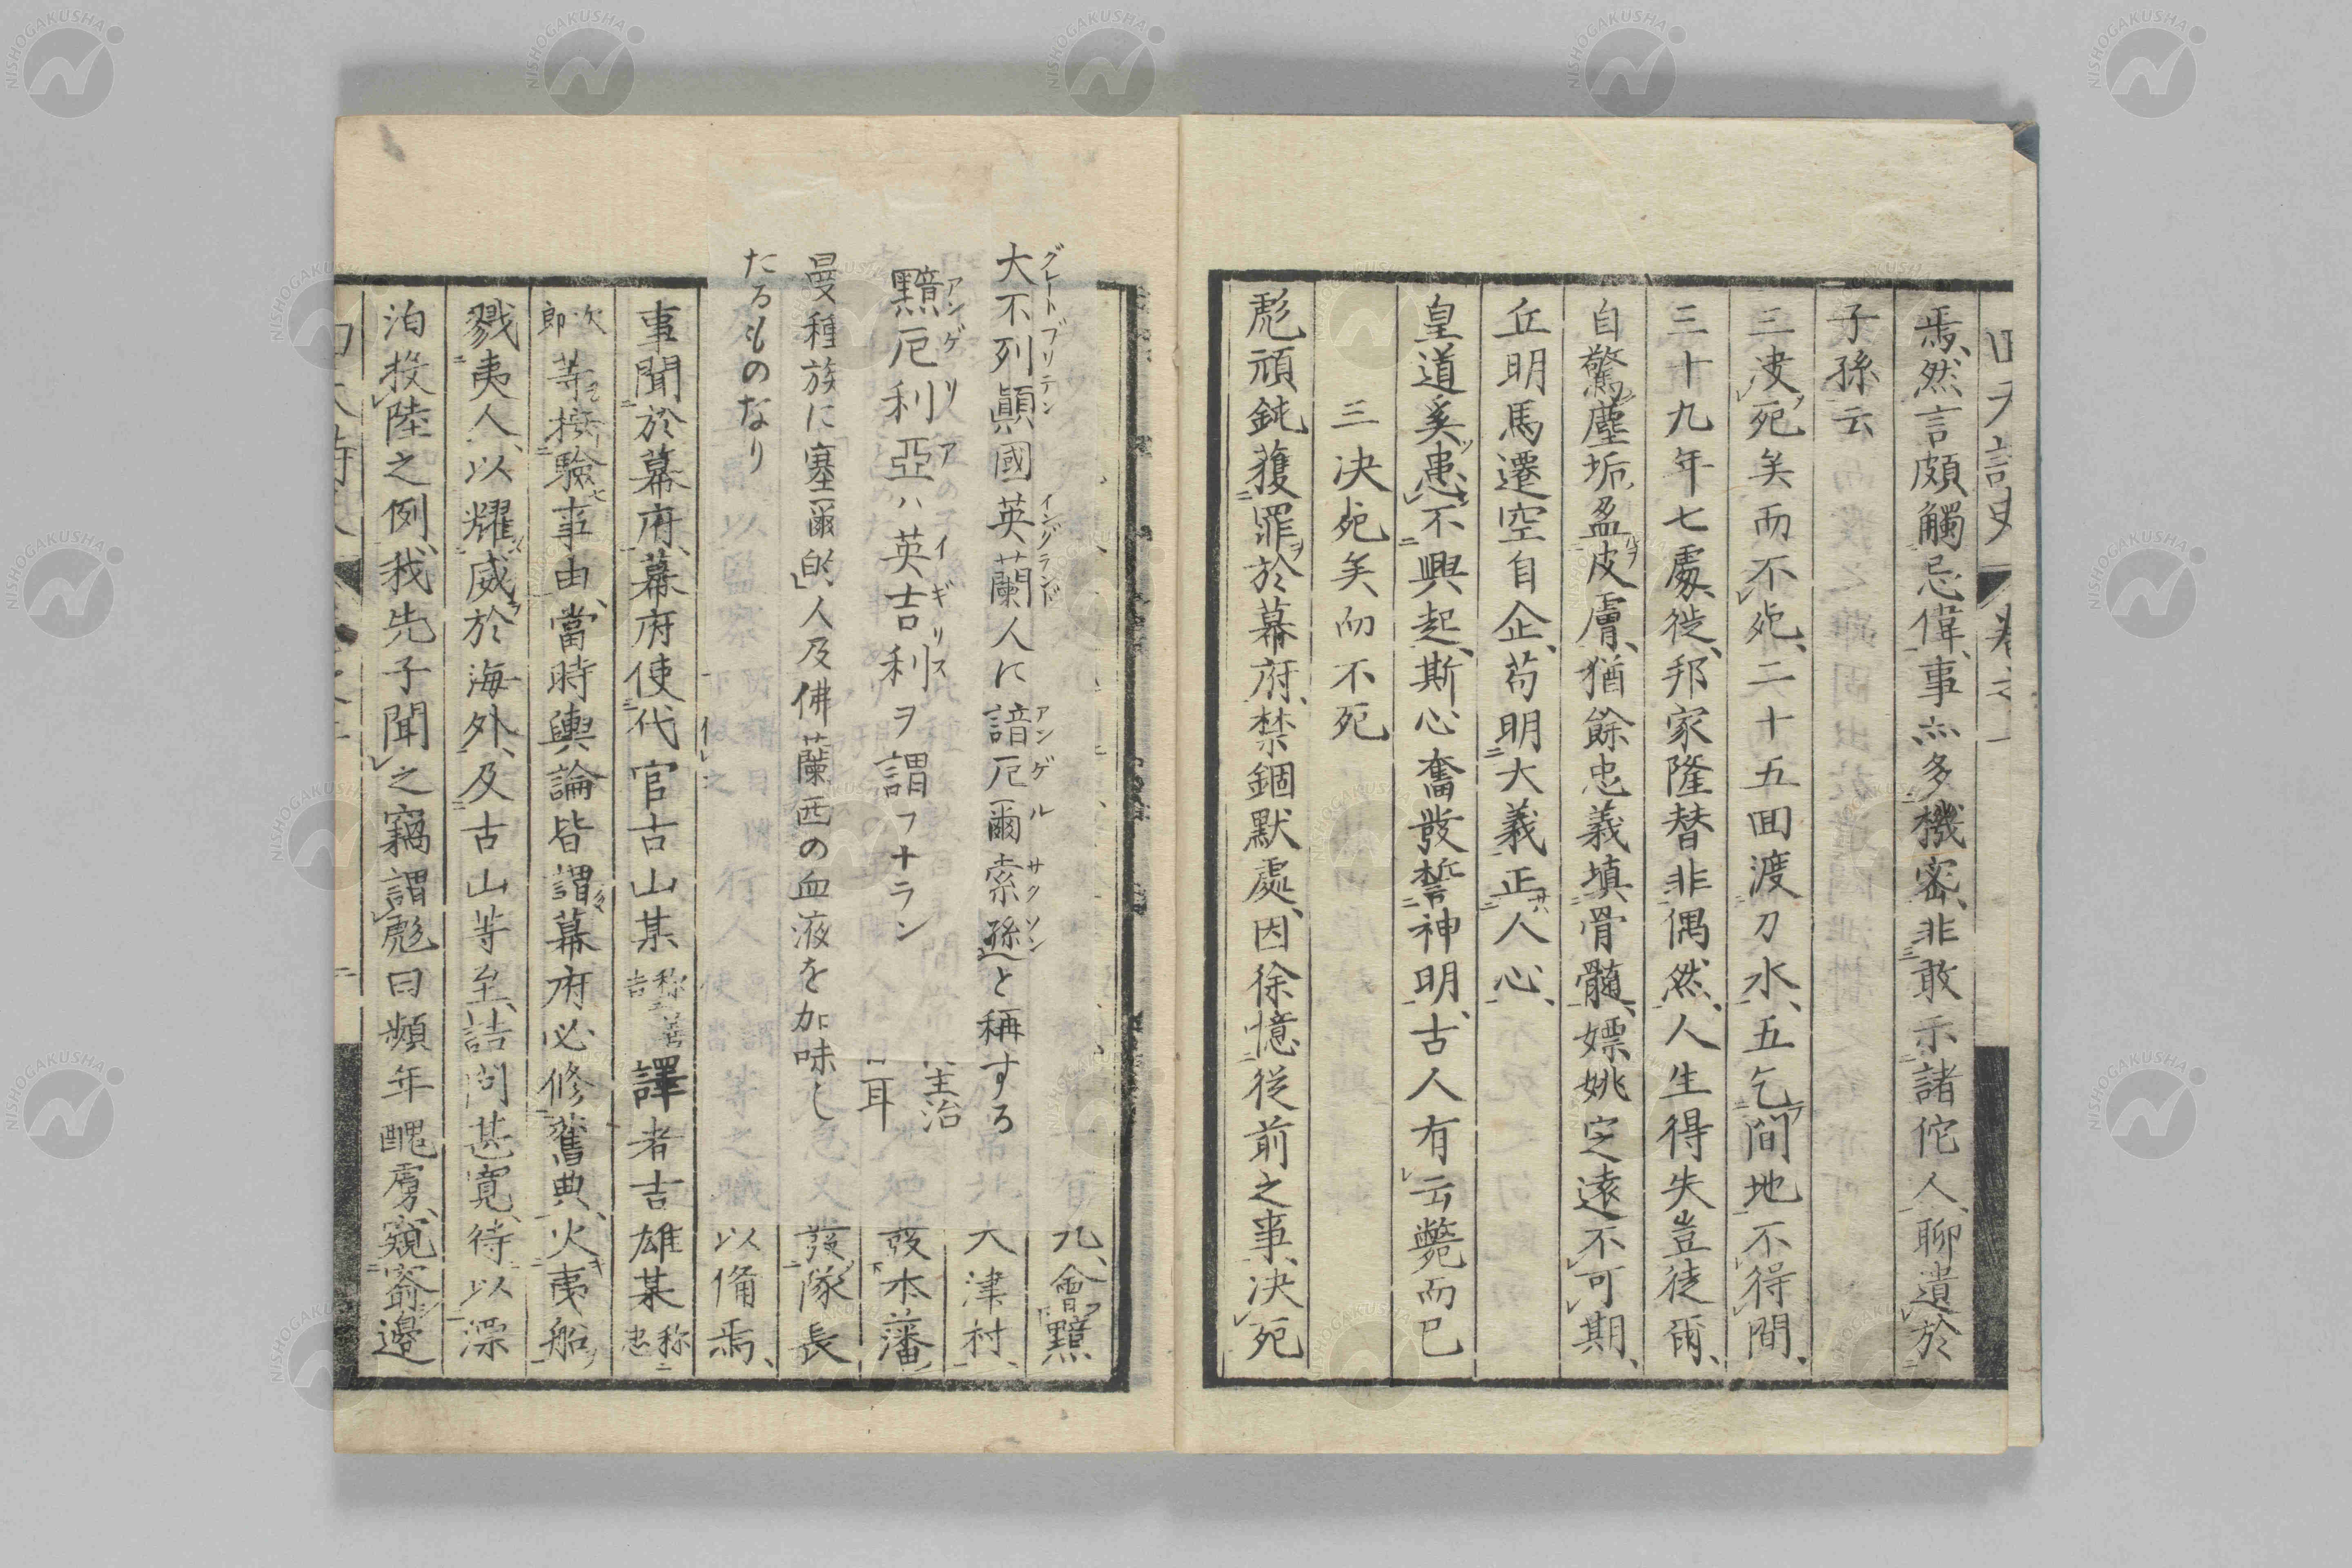 焉、然言頗觸忌偉、事亦多機密、非敢示諸佗人、聊遺於
子孫云
三决死矣而不死、二十五回渡刀水、五乞間地不得間、
三十九年七處徙、邦家隆替非偶然、人生得失豈徒爾、
自驚塵垢盈皮膚、猶餘忠義填骨髓、嫖姚定遠不可期、
丘明馬遷空自企、苟明大義正人心、
皇道奚患不興起、斯心奮發誓神明、古人有云斃而已
三决死矣而不死
彪頑鈍獲罪於幕府、禁錮默處、因徐憶從前之事、决死
大不列顚國英蘭人に諳厄爾索遜と稱する
グレートブリテン イングランド アンゲルサクソン
黯厄利亞ハ英吉利ヲ謂フナラン
アンゲリア イギリス
曼種族に塞爾的人及佛蘭西の血液を加味し
たるものなり
九、會黯
大津村、
主治
發本藩
耳
發隊長
以備焉、
事聞於幕府、幕府使代官古山某 称善吉 譯者吉雄某 称忠
次郎 等按驗事由、當時輿論皆謂幕府必修舊典、火夷船
戮夷人、以耀威於海外、及古山等至、詰問甚寛、待以漂
泊投陸之例、我先子聞之竊謂彪曰頻年醜虜、窺窬邊